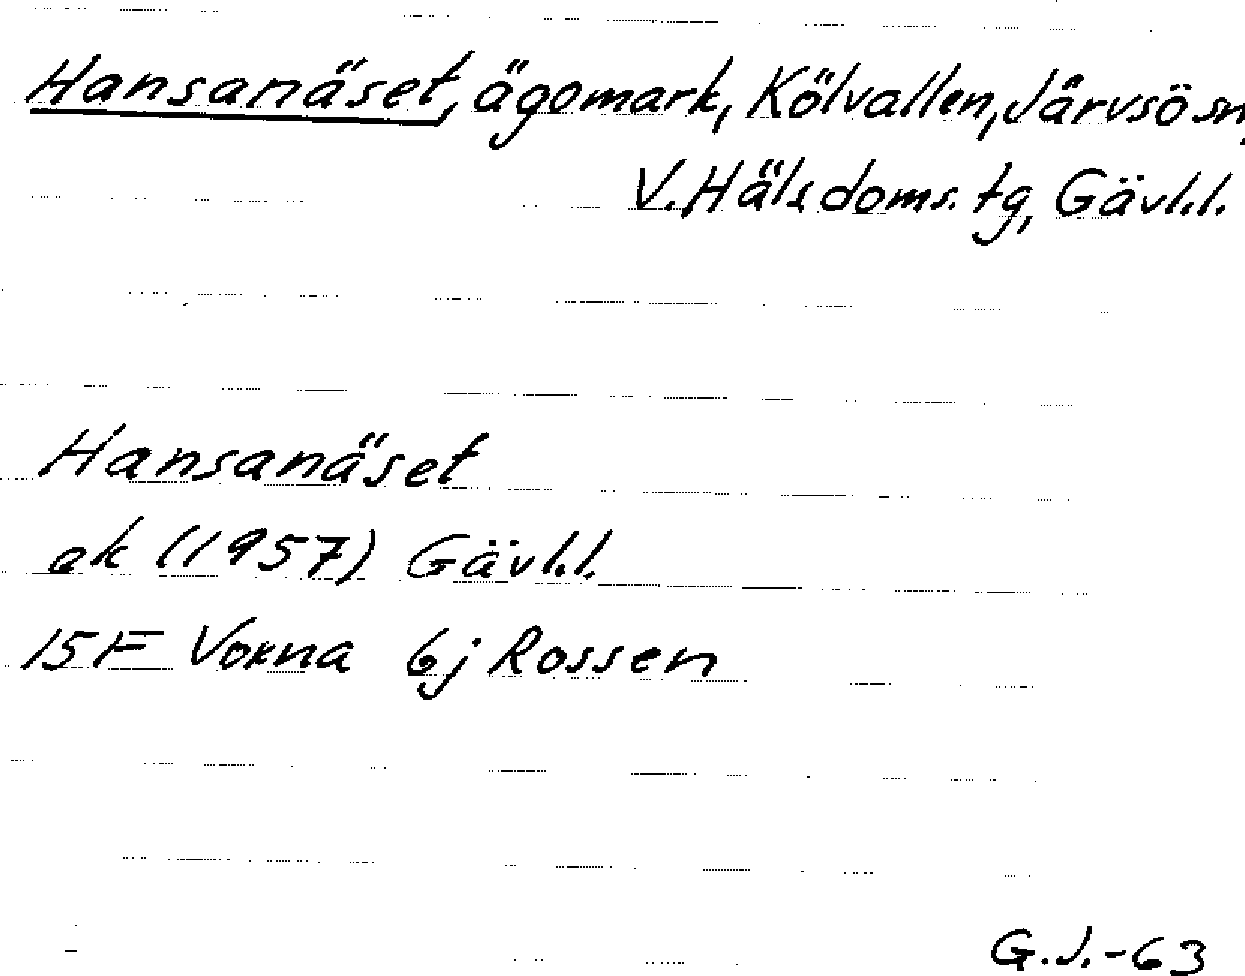 Hansanäset, ägomark, Kölvallen, Järvsö sn,
V. Häls. doms. tg, Gävl.l.
Hansanäset
ek (1957) Gävl.l.
15F Voxna 6j Rossen
G.J.-63